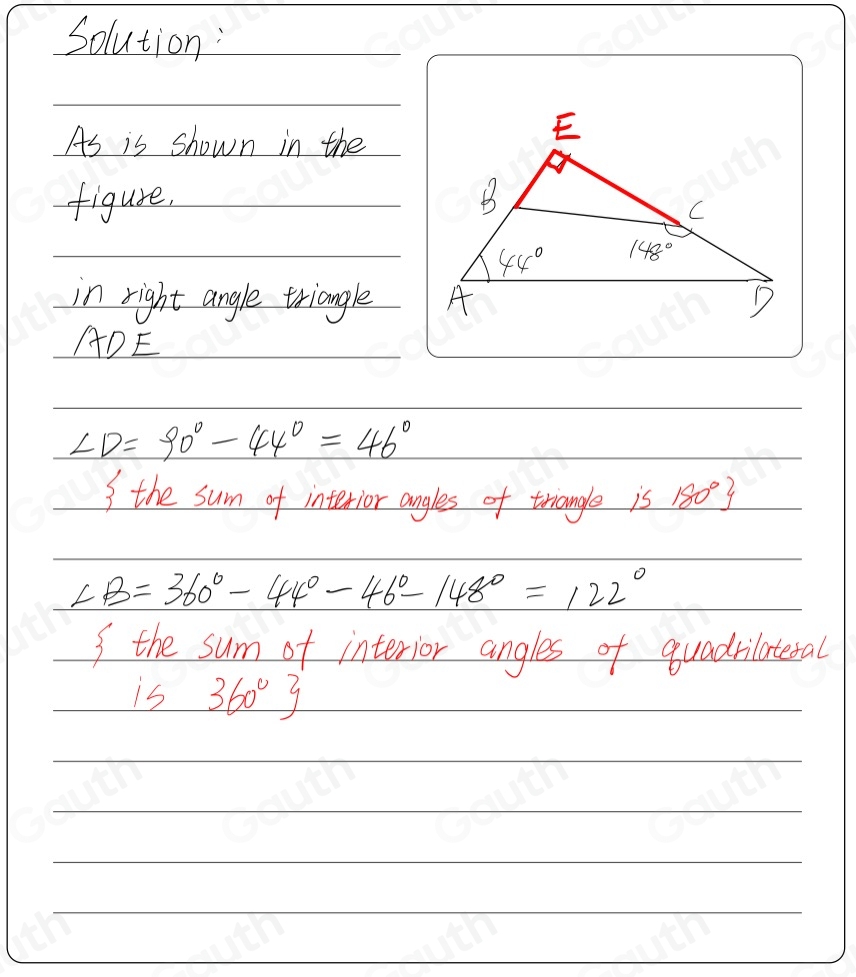 Solution:
As is shown in the
figure.
E
B
C
44°
148°
A
D
in right angle triangle
ADE
∠D= 90° - 44° = 46°
{ the sum of interior angles of triangle is 180° }
∠B= 360° - 44° - 46° - 148° = 122°
{ the sum of interior angles of quadrilateral
is 360° }